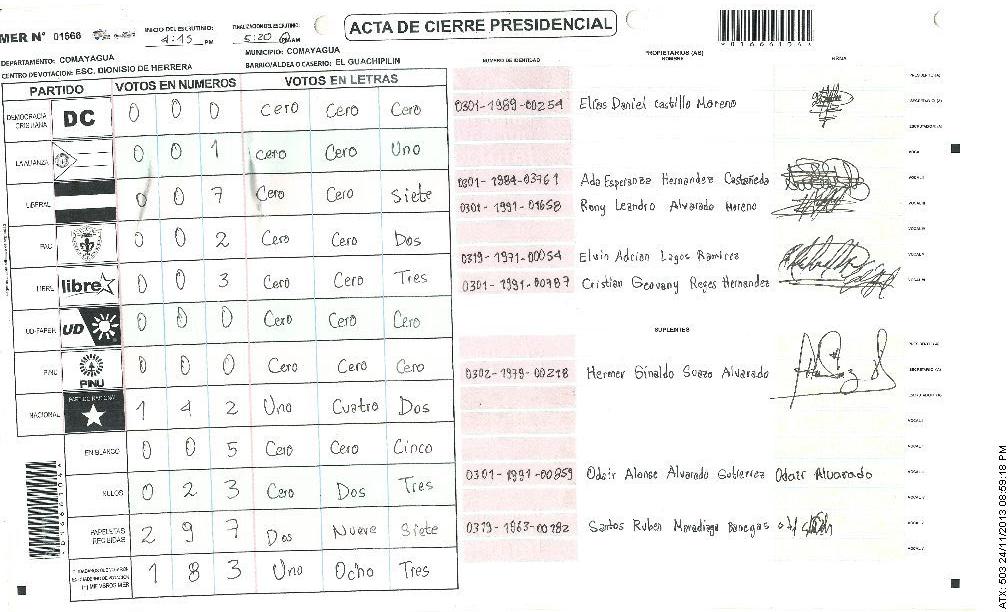 ACTA DE CIERRE PRESIDENCIAL
MER N° 01666 INICIO DEL ESCRUTINIO: 4:15 PM FINALIZACION DEL ESCRUTINIO: 5:20 AM
DEPARTAMENTO: COMAYAGUA MUNICIPIO: COMAYAGUA
CENTRO DE VOTACION: ESC. DIONISIO DE HERRERA BARRIO/ALDEA O CASERIO: EL GUACHIPILIN
PARTIDO VOTOS EN NUMEROS VOTOS EN LETRAS
DEMOCRACIA CRISTIANA DC 0 0 0 Cero Cero Cero
LA ALIANZA 0 0 1 Cero Cero Uno
LIBERAL 0 0 7 Cero Cero Siete
PAC 0 0 2 Cero Cero Dos
LIBRE libre 0 0 3 Cero Cero Tres
UD-FAPER UD 0 0 0 Cero Cero Cero
PINU PINU 0 0 0 Cero Cero Cero
NACIONAL 1 4 2 Uno Cuatro Dos
EN BLANCO 0 0 5 Cero Cero Cinco
NULOS 0 2 3 Cero Dos Tres
PAPELETAS RECIBIDAS 2 9 7 Dos Nueve Siete
1 8 3 Uno Ocho Tres
NUMERO DE IDENTIDAD PROPIETARIOS (AS) NOMBRE FIRMA
0301-1989-00254 Elías Daniel Castillo Moreno
0301-1984-03761 Ada Esperanza Hernandez Castañeda
0301-1991-01658 Rony Leandro Alvarado Moreno
0319-1971-00054 Elvin Adrian Lagos Ramirez
0301-1991-00787 Cristian Geovany Reyes Hernandez
SUPLENTES
0302-1979-00218 Hermer Sinaldo Suazo Alvarado
0301-1991-00859 Odair Alonse Alvarado Gutierrez Odair Alvarado
0319-1963-00182 Santos Ruben
ATX: 503 24/11/2013 08:59:18 PM